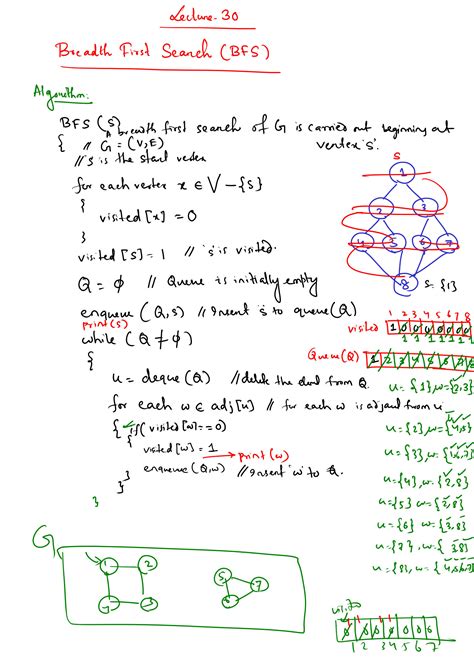 Lecture-30
Breadth First Search (BFS)
Algorithm:
BFS (S)
A breadth first search of G is carried out beginning at
vertex 's'.
{ // G = (V,E)
// s is the start vertex
for each vertex x ∈ V - {S}
{
visited [x] = 0
}
visited [S] = 1 // 's' is visited.
Q = ϕ // Queue is initially empty
enqueue (Q,s) // Insert 's' to queue(Q)
print(s)
while (Q ≠ ϕ)
{
u = deque (Q) // delete the element from Q.
for each w ∈ adj[u] // for each w is adjacent from u
{ if (visited [w] == 0)
{
visited [w] = 1
print (w)
enqueue (Q,w) // Insert 'w' to Q.
}
}
}
S
1
2 3
4 5 6 7
8
S = {1}
1 2 3 4 5 6 7 8
visited 1 0 0 0 0 0 0 0
1 1 1 1 1 1 1
Queue(Q) 1 2 3 4 5 6 7 8
u = {1}, w = {2,3}
u = {2}, w = {4,5}
u = {3}, w = {1,6,7}
u = {4}, w = {2,8}
u = {5} w = {2,8}
u = {6} w = {3,8}
u = {7}, w = {3,8}
u = {8}, w = {4,5,6,7}
G
1 2
3
5 7
6
1 2 3 4 5 6 7